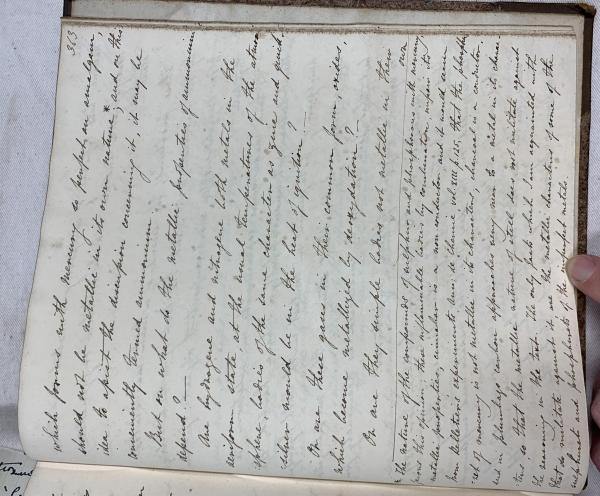 313
which forms with mercury so perfect an amalgam,
should not be metallic in its own nature*; and on this
idea to assist the discussion concerning it, it may be
conveniently termed ammonium.
But on what do the metallic properties of ammonium
depend? —
Are hydrogene and nitrogene both metals in the
aeriform state, at the usual temperatures of the atmos-
phere, bodies of the same character as zinc and quick-
silver would be in the heat of ignition? —
Or are these gases in their common form, oxides,
which become metallized by deoxydation? —
Or are they simple bodies not metallic in their
own
* The nature of the compounds of sulphur and phosphorus with mercury
favors this opinion; these inflammable bodies by combination, impair its
metallic properties; cinnabar is a non conductor, and it would seem
from Pelletier's experiments Ann. de Chimie vol. XIII p. 125, that the phosphu-
ret of mercury is not metallic in its characters, charcoal is a conductor,
and in plumbago carbon approaches very near to a metal in its charac-
ters so that the metallic nature of steel does not militate against
the reasoning in the text. The only facts which I am acquainted with
that do militate against it are the metallic characters of some of the
sulphurets and phosphurets of the imperfect metals